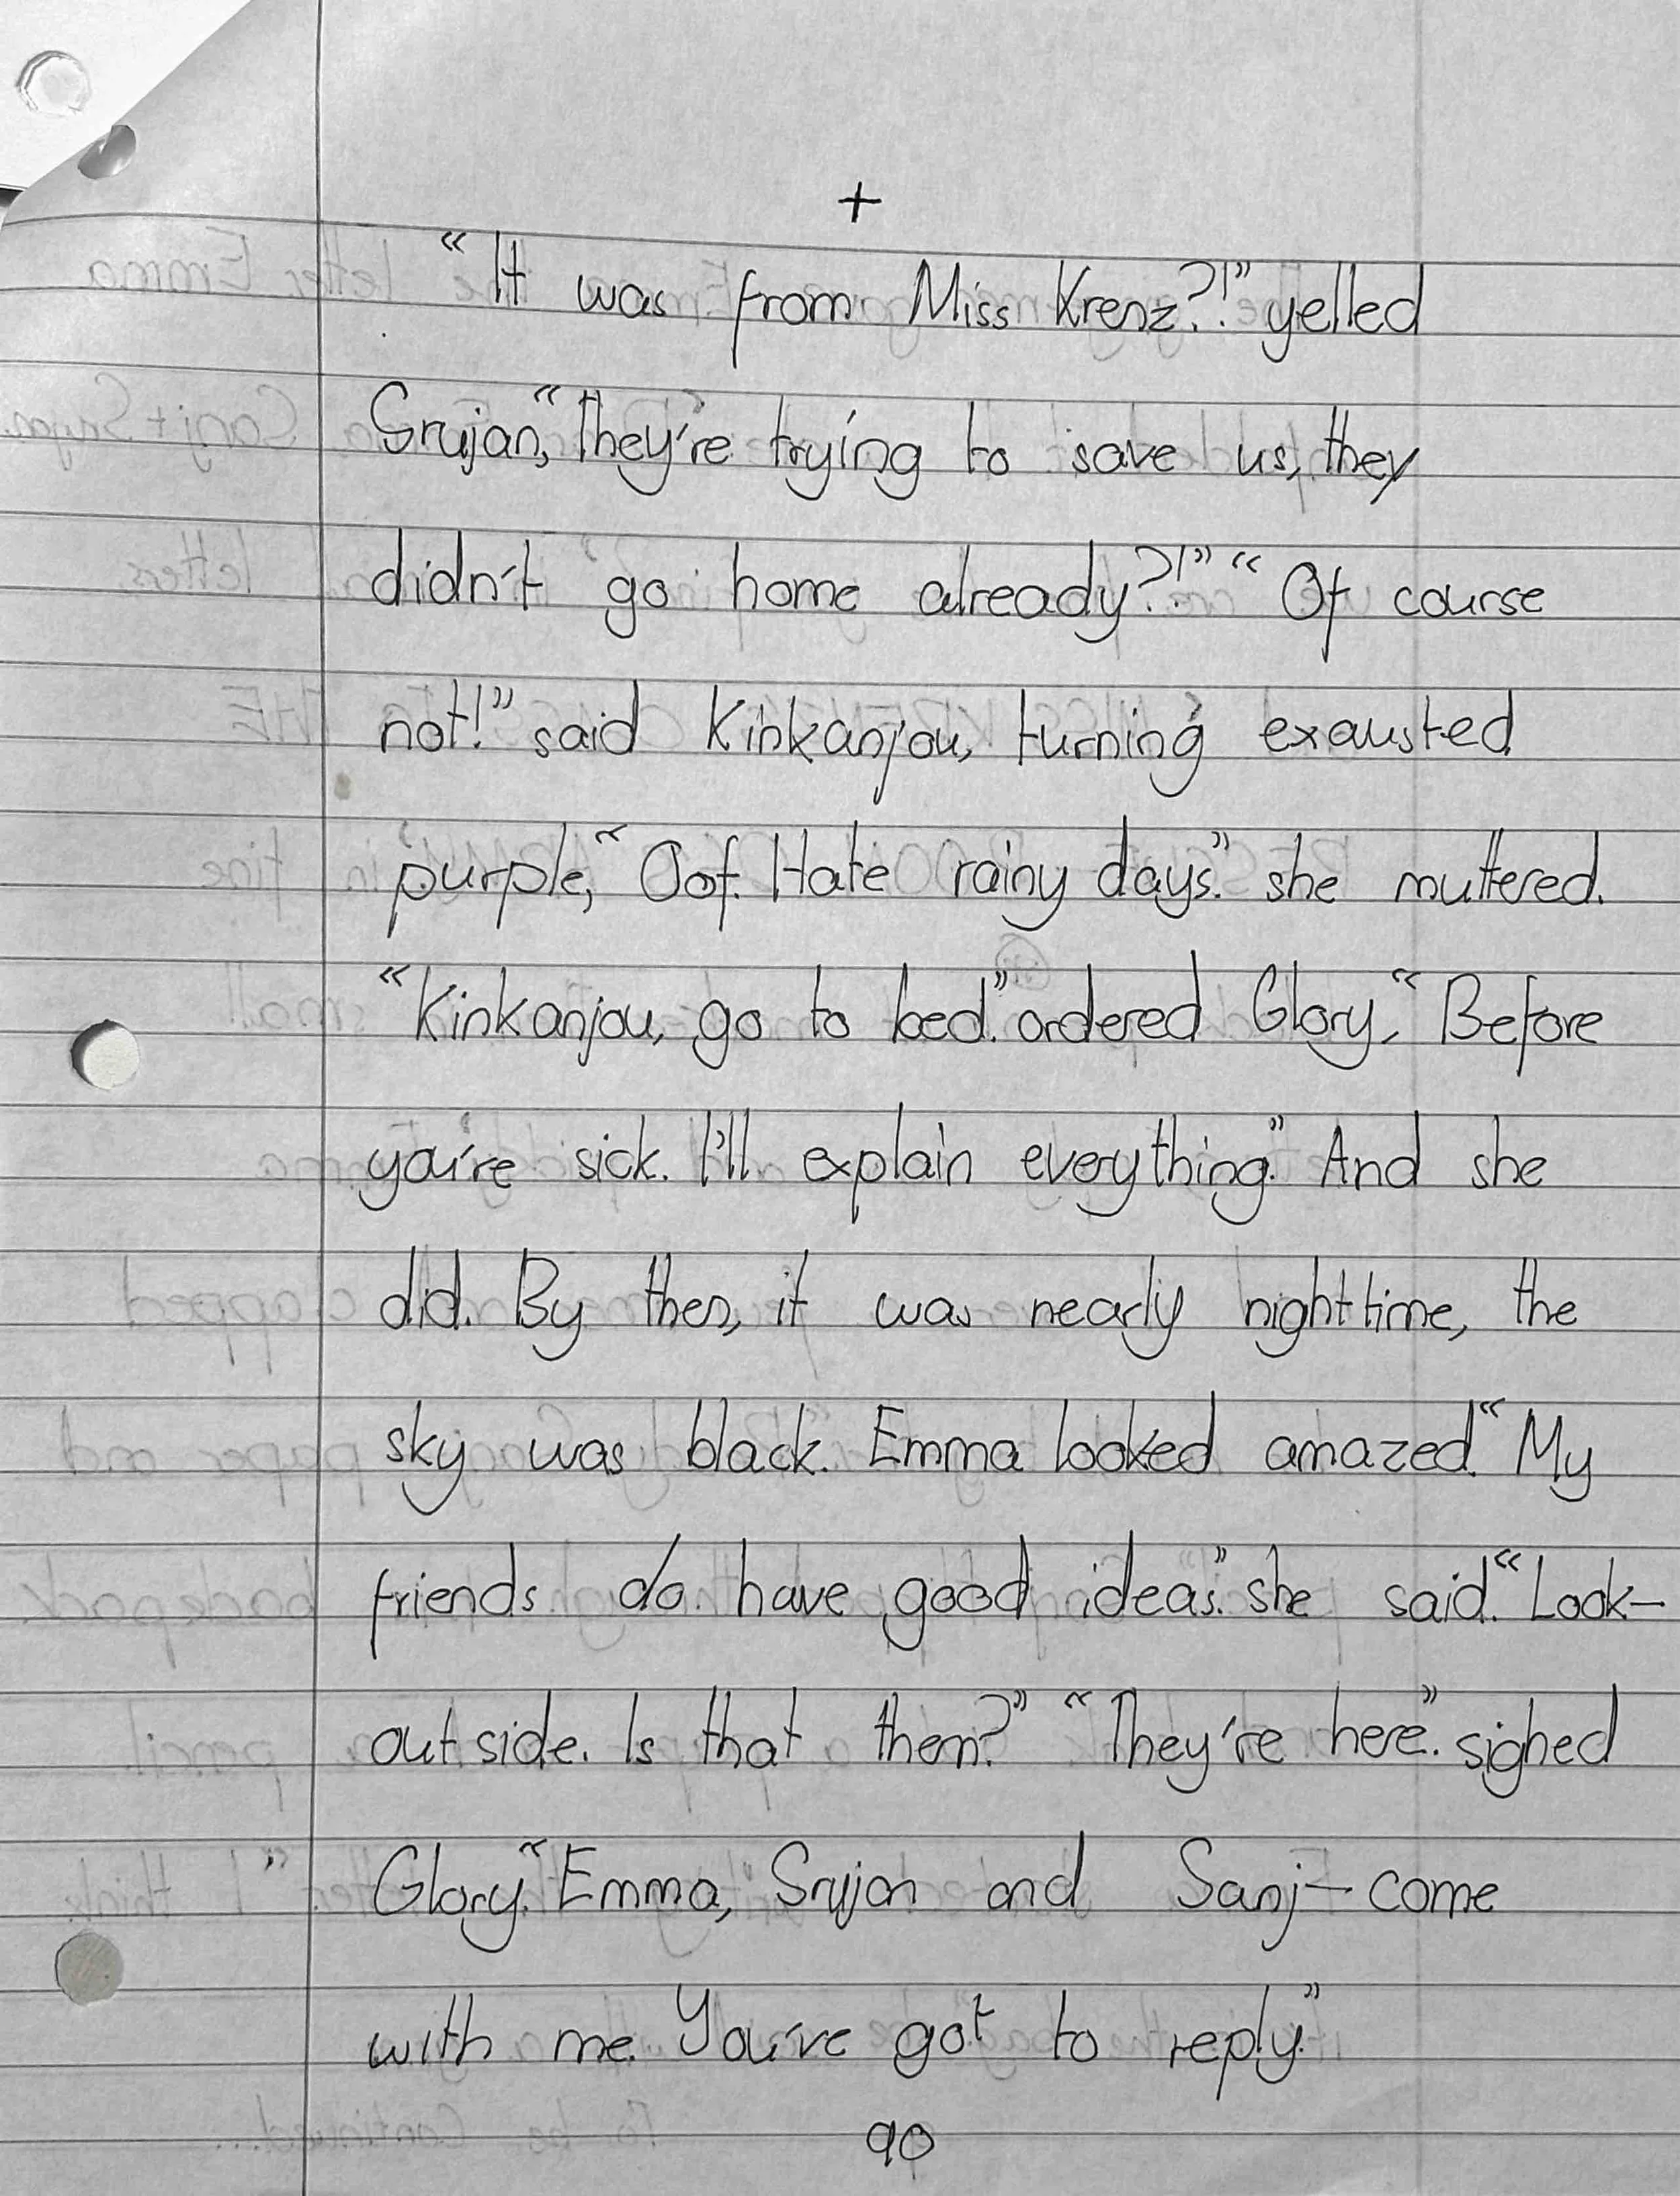 +
"It was from Miss Krenz?!" yelled
Srujan, "they're trying to save us, they
didn't go home already?!" "Of course
not!" said Kinkanjou, turning exausted
purple, "Oof. Hate rainy days." she muttered.
"Kinkanjou, go to bed." ordered Glory, "Before
you're sick. I'll explain everything." And she
did. By then, it was nearly nighttime, the
sky was black. Emma looked amazed. "My
friends do have good ideas." she said. "Look—
outside. Is that them?" "They're here." sighed
Glory. "Emma, Srujan and Sanj— come
with me. You've got to reply."
90